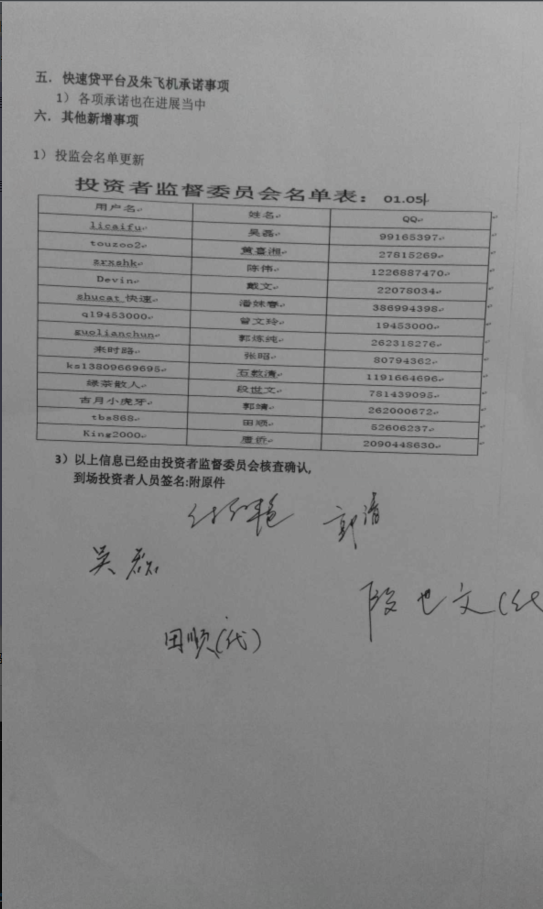 五. 快速贷平台及朱飞机承诺事项
1） 各项承诺也在进展当中
六. 其他新增事项
1） 投监会名单更新
投资者监督委员会名单表: 01.05
用户名 姓名 QQ
licaifu 吴磊 99165397
touzoo2 黄喜湘 27815269
srxshk 陈伟 1226887470
Devin 戴文 22078034
shucat 快速 潘妹春 386994398
q19453000 曾文玲 19453000
guolianchun 郭炼纯 262315276
来时路 张昭 80794362
ks13809669695 石数清 1191664696
绿茶散人 段世文 781439095
古月小虎牙 郭靖 262000672
tbs868 田顺 52606237
King2000 2090448630
3）以上信息已经由投资者监督委员会核查确认,
到场投资者人员签名:附原件
郭靖
吴磊
段世文(代
田顺(代)